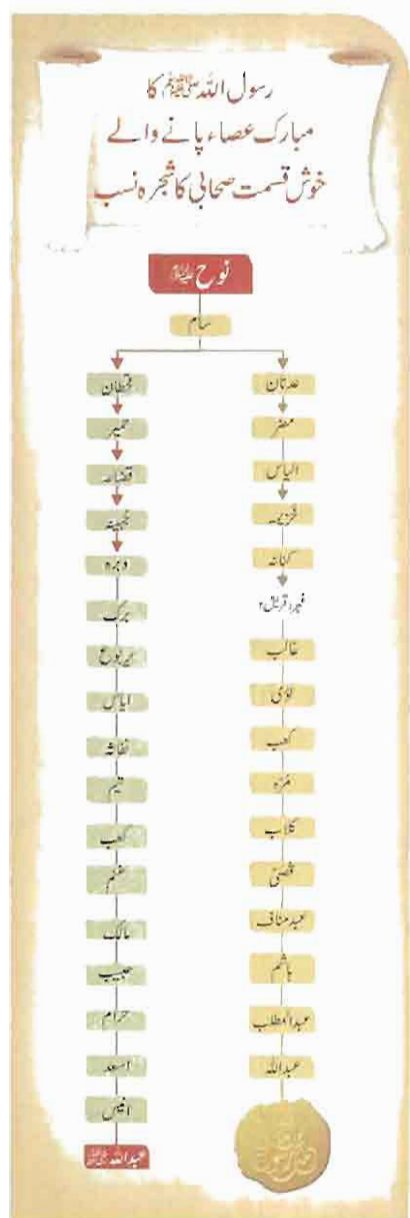 رسول اللہ ﷺ کا
مبارک عصاء پانے والے
خوش قسمت صحابی کا شجرہ نسب
نوح علیہ السلام
سام
عدنان
مضر
الیاس
خزیمہ
کنانہ
فہر (قریش)
غالب
لؤی
کعب
مُرّہ
کلاب
قصیّ
عبد مناف
ہاشم
عبدالمطلب
عبداللہ
قحطان
حمیر
قضاعہ
جُہینہ
وبرہ
برک
یربوع
ایاس
نفاثہ
تیم
کعب
غنم
مالک
حبیب
حرام
اسعد
انیس
عبداللہ رضی اللہ عنہ